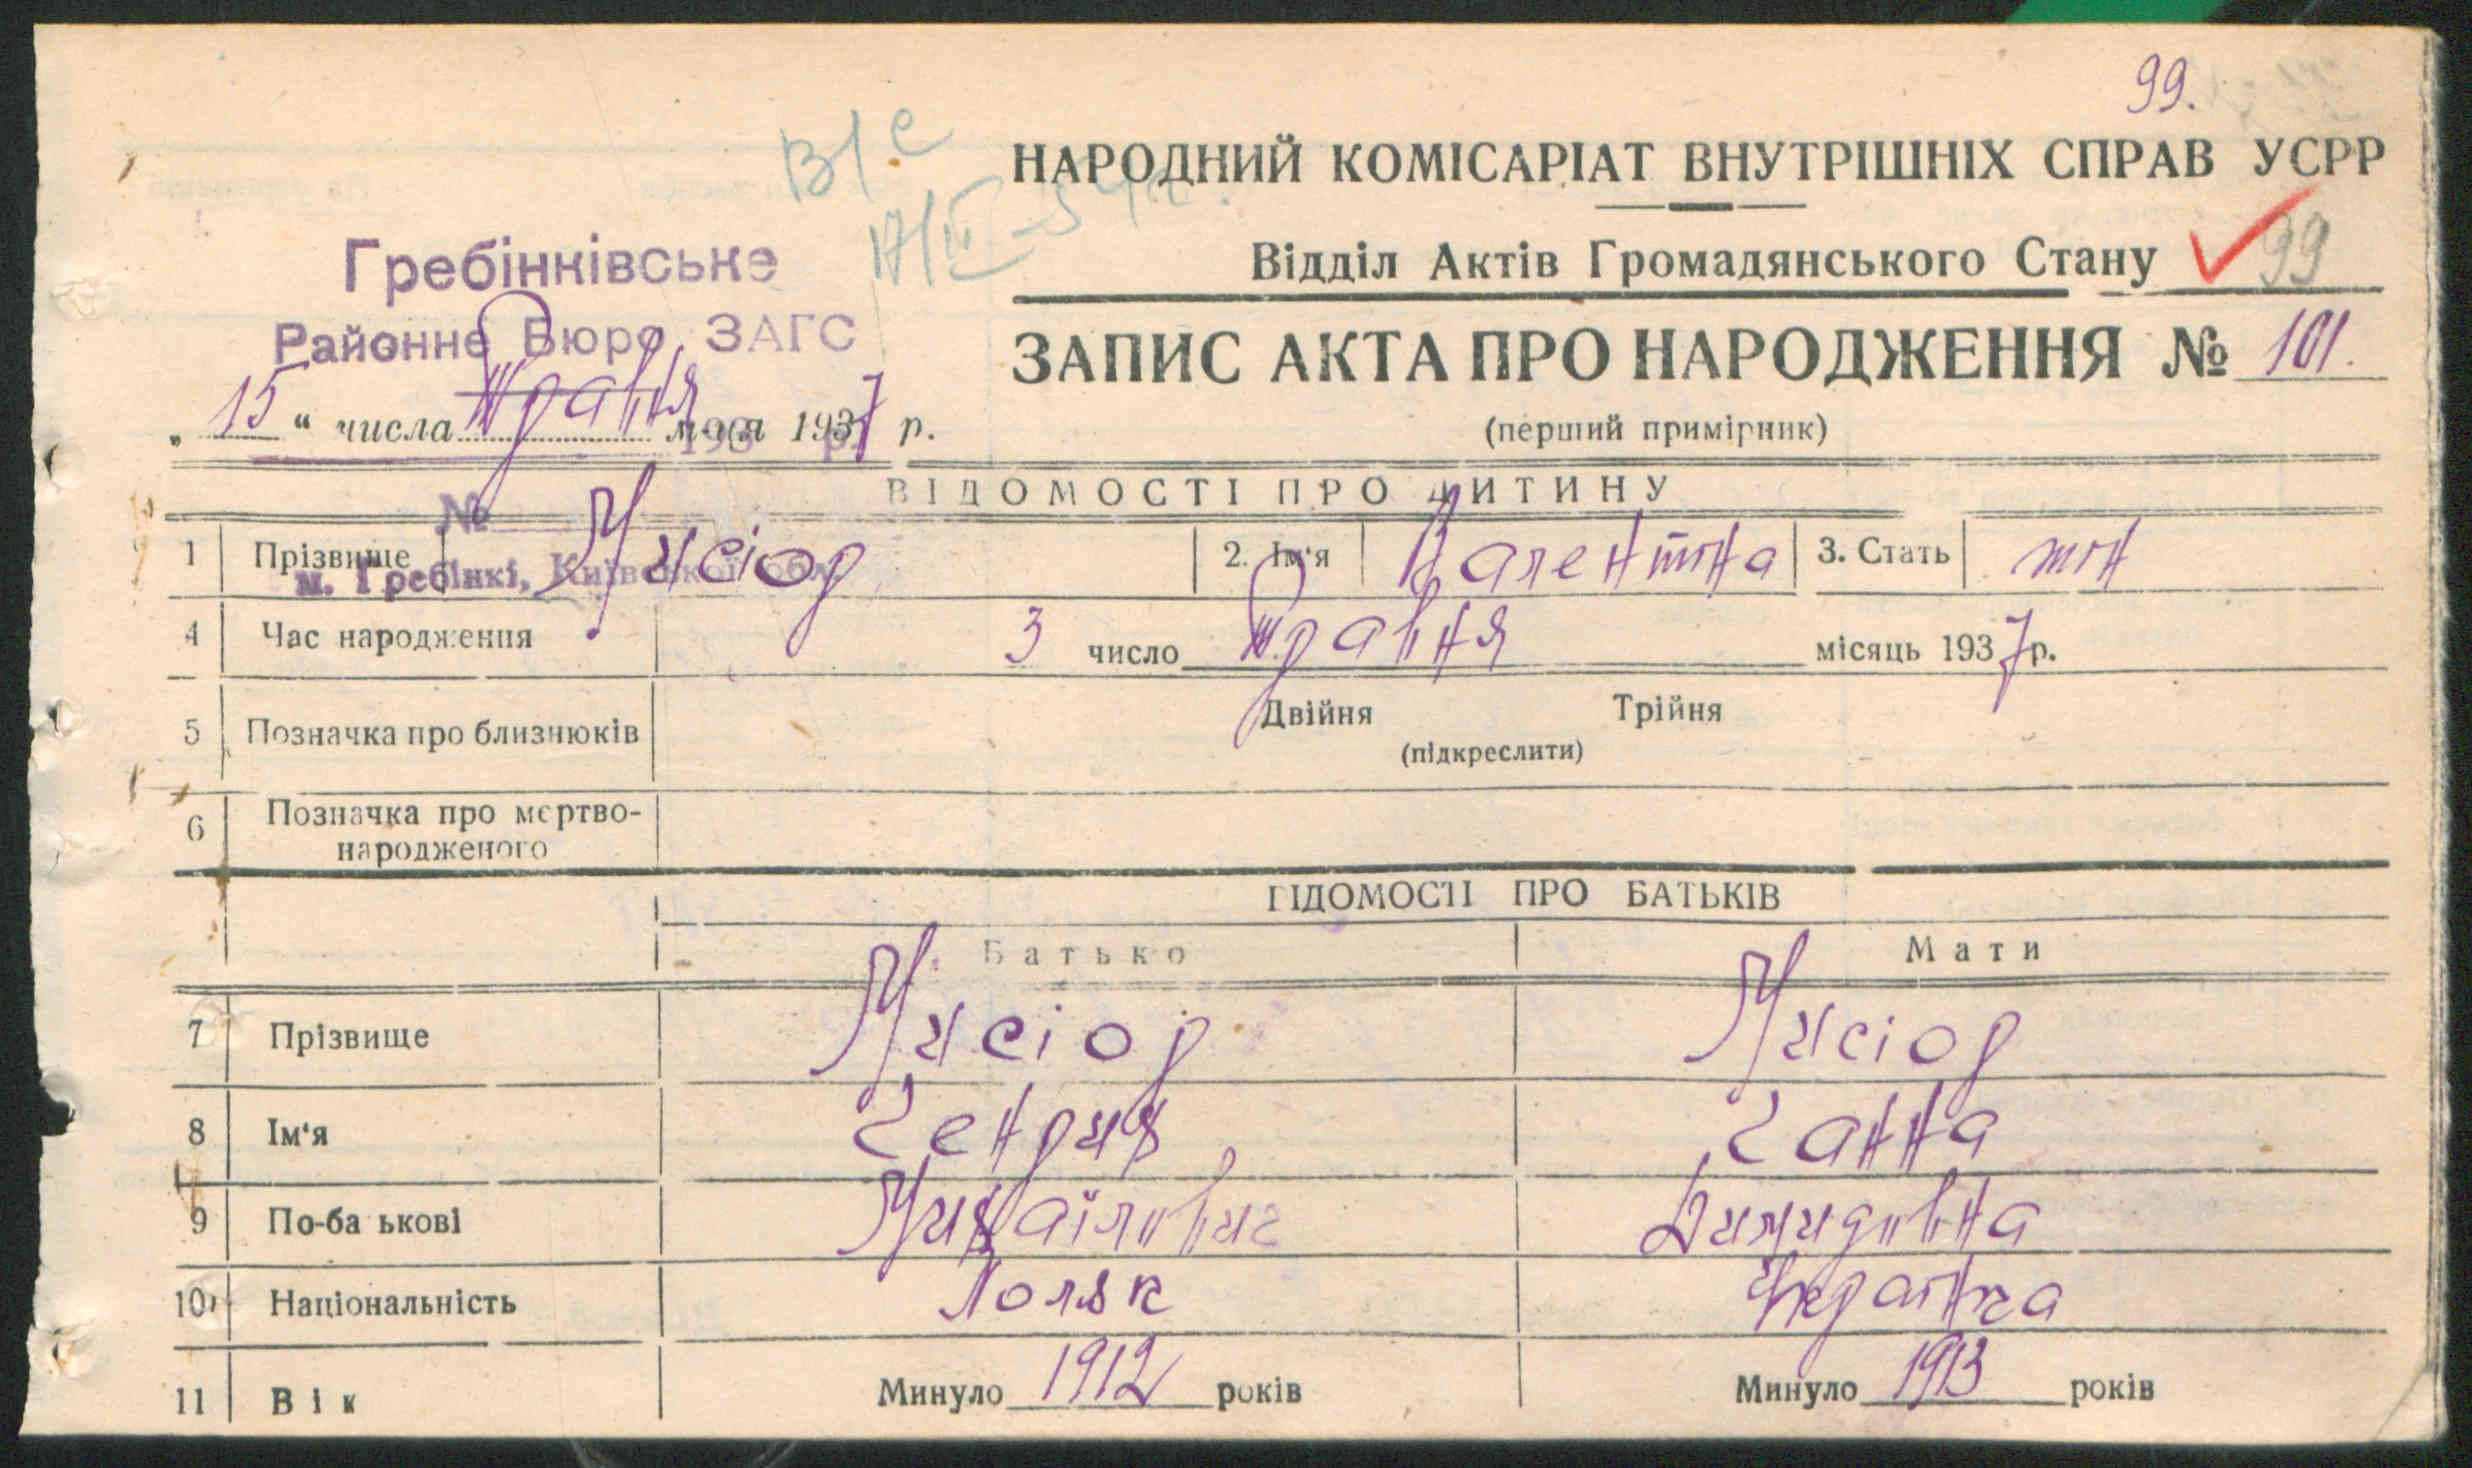 99.
В/с
НАРОДНИЙ КОМІСАРІАТ ВНУТРІШНІХ СПРАВ УСРР
Відділ Актів Громадянського Стану 99
Гребінківське
Районне Бюро ЗАГС
ЗАПИС АКТА ПРО НАРОДЖЕННЯ № 101.
„ 15 “ числа травня м-ця 1937 р.
193 р.
(перший примірник)
ВІДОМОСТІ ПРО ДИТИНУ
№
1 Прізвище Мисіор 2. Ім'я Валентіна 3. Стать жін
м. Гребінкі, Київської обл.
4 Час народження 3 число травня місяць 1937 р.
5 Позначка про близнюків Двійня Трійня
(підкреслити)
6 Позначка про мертво-
народженого
ВІДОМОСТІ ПРО БАТЬКІВ
Батько Мати
7 Прізвище Мисіор Мисіор
8 Ім'я Генрих Ганна
9 По-ба ькові Михайлович Димидовна
10 Національність Поляк Українка
11 Вік Минуло 1912 років Минуло 1913 років